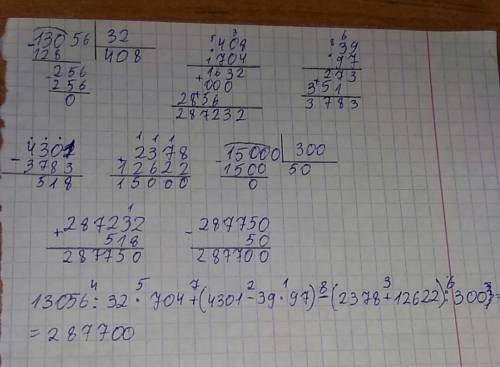 13056 32
128 408
256
256
0
408
704
1632
000
2856
287232
39
97
273
351
3783
4301
3783
518
2378
12622
15000
15000 300
1500 50
0
287232
518
287750
287750
50
287700
13056 : 32 · 704 + (4301 - 39 · 97) - (2378 + 12622) : 300 =
= 287700